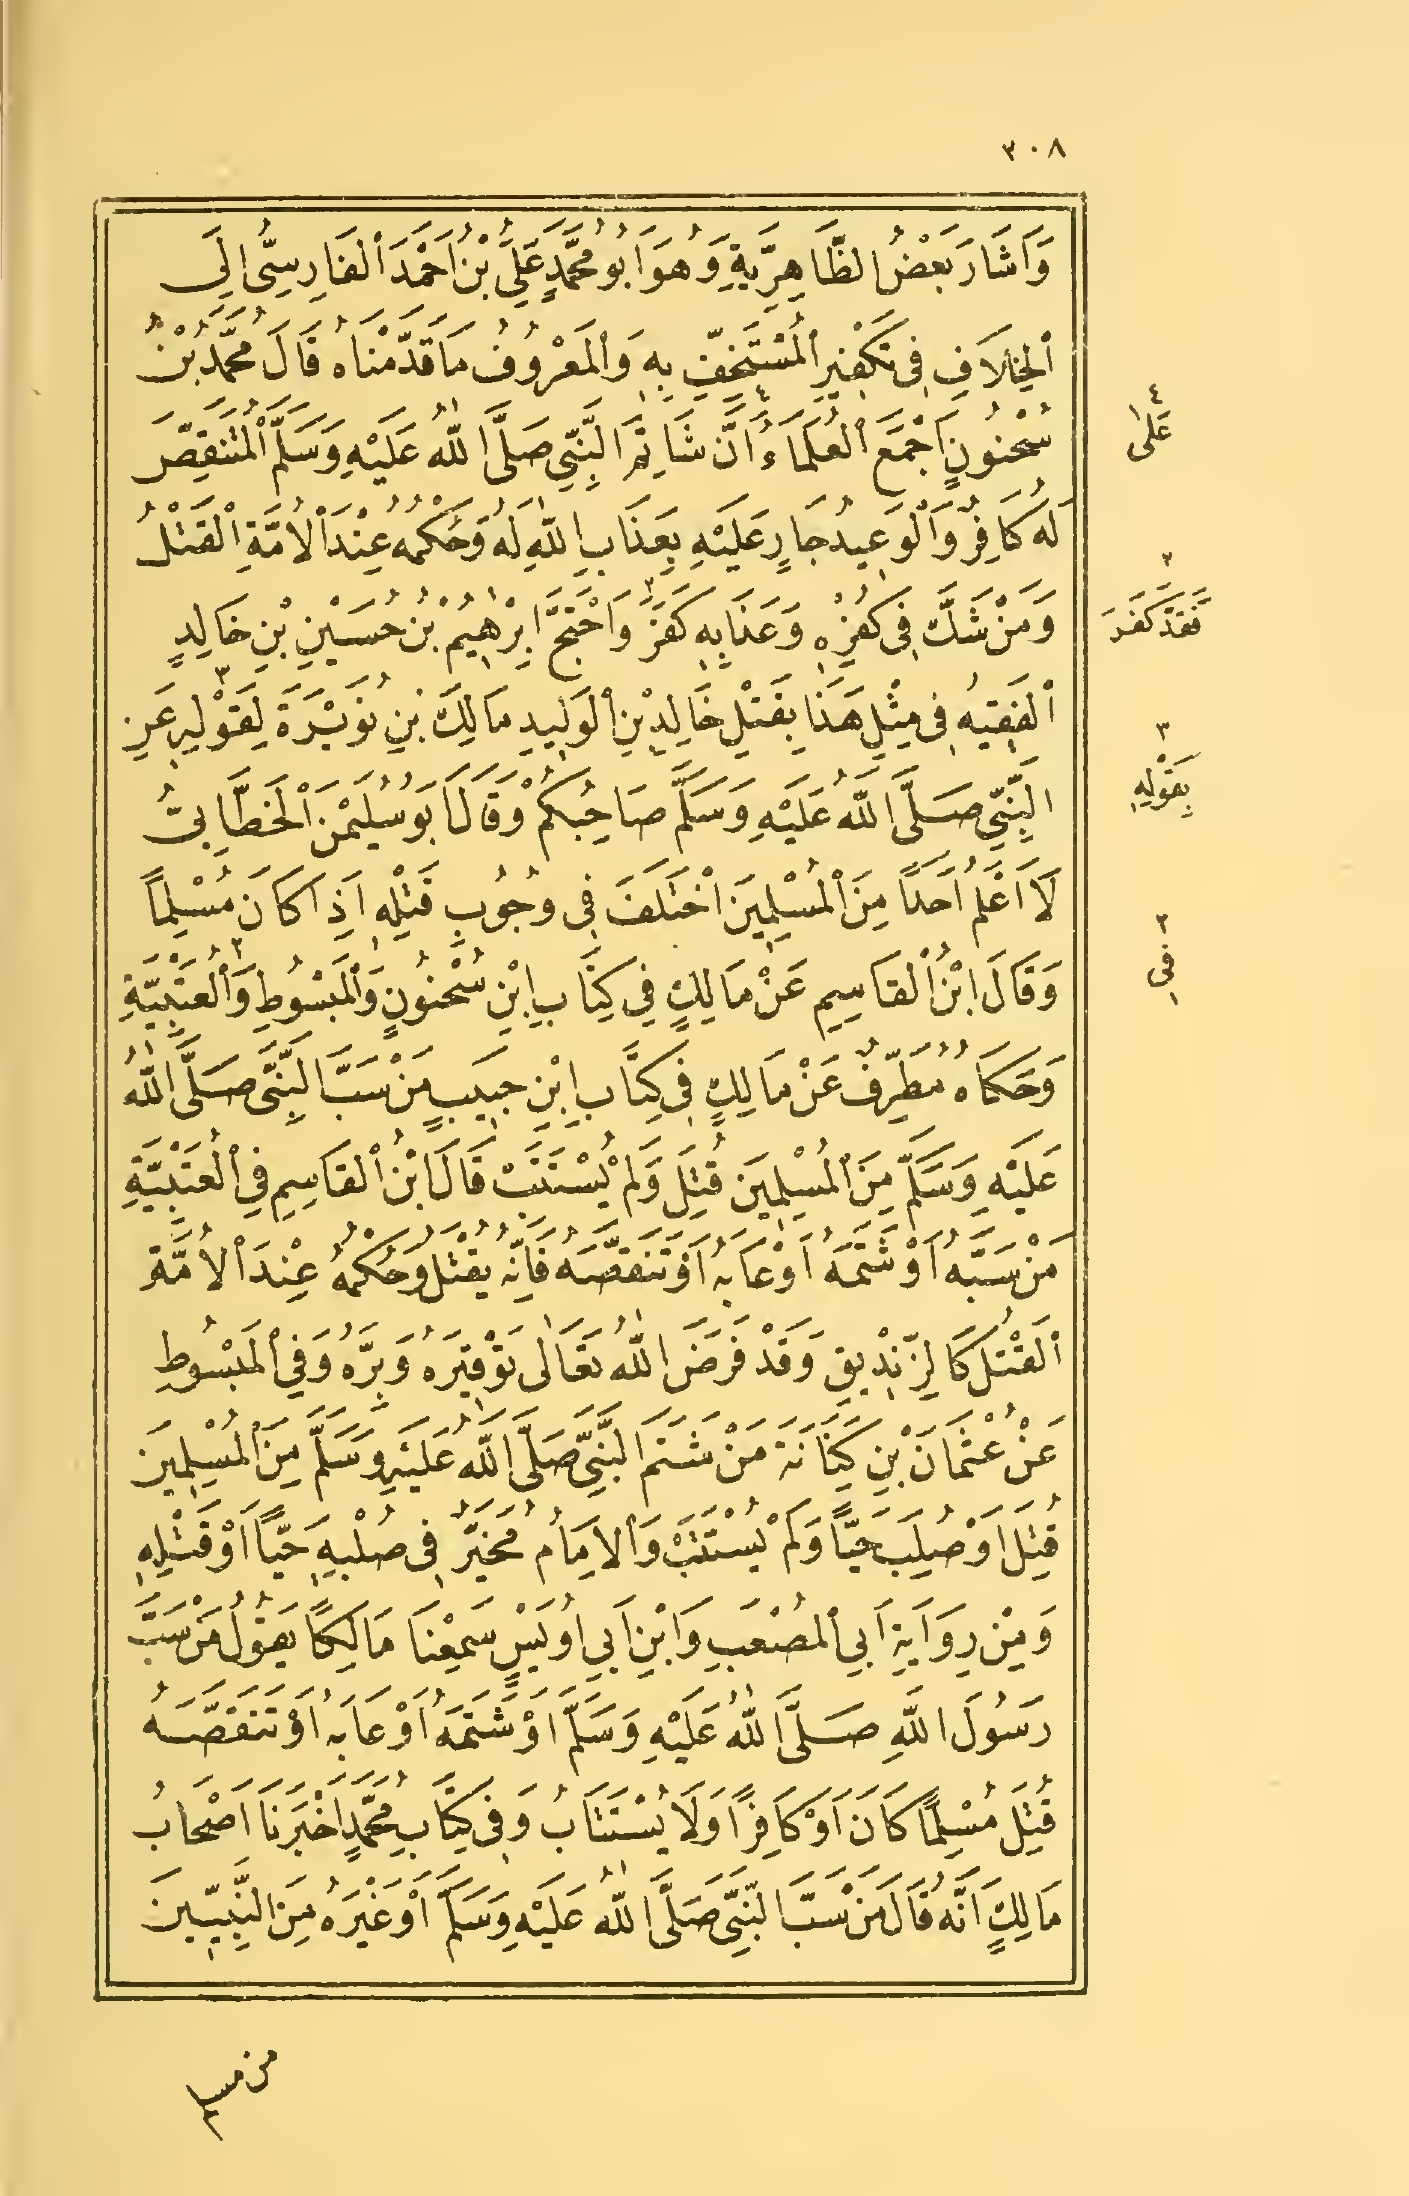 ٣٠٨
وَاَشَارَ بَعْضُ الظَّاهِرِيَّةِ وَهُوَ اَبُو مُحَمَّدٍ عَلِيُّ بْنُ اَحْمَدَ الْفَارِسِيُّ اِلَى
الْخِلَافِ فِى تَكْفِيرِ الْمُسْتَخِفِّ بِهِ وَالْمَعْرُوفُ مَا قَدَّمْنَاهُ قَالَ مُحَمَّدُ بْنُ
سُحْنُونٍ اَجْمَعَ الْعُلَمَاءُ ٤ اَنَّ شَاتِمَ النَّبِىِّ صَلَّى اللّٰهُ عَلَيْهِ وَسَلَّمَ الْمُتَنَقِّصَ
لَهُ كَافِرٌ وَالْوَعِيدُ جَارٍ عَلَيْهِ بِعَذَابِ اللّٰهِ لَهُ وَحُكْمُهُ عِنْدَ الْاُمَّةِ الْقَتْلُ
وَمَنْ شَكَّ فِى كُفْرِهِ وَعَذَابِهِ كَفَرَ ٢ وَاحْتَجَّ اِبْرٰهِيمُ بْنُ حُسَيْنِ بْنِ خَالِدٍ
الْفَقِيهُ فِى مِثْلِ هَذَا بِقَتْلِ خَالِدِ بْنِ الْوَلِيدِ مَالِكَ بْنَ نُوَيْرَةَ لِقَوْلِهِ ٣ عَنِ
النَّبِىِّ صَلَّى اللّٰهُ عَلَيْهِ وَسَلَّمَ صَاحِبُكُمْ وَقَالَ اَبُو سُلَيْمٰنَ الْخَطَّابِىُّ
لَا اَعْلَمُ اَحَدًا مِنَ الْمُسْلِمِينَ اخْتَلَفَ فِى وُجُوبِ قَتْلِهِ اِذَا كَانَ مُسْلِمًا
وَقَالَ ابْنُ الْقَاسِمِ عَنْ مَالِكٍ فِى كِتَابِ ابْنِ سُحْنُونٍ وَالْمَبْسُوطِ وَالْعُتْبِيَّةِ ٢
وَحَكَاهُ مُطَرِّفٌ عَنْ مَالِكٍ فِى كِتَابِ ابْنِ حَبِيبٍ مَنْ سَبَّ النَّبِىَّ صَلَّى اللّٰهُ
عَلَيْهِ وَسَلَّمَ مِنَ الْمُسْلِمِينَ قُتِلَ وَلَمْ يُسْتَتَبْ قَالَ ابْنُ الْقَاسِمِ فِى الْعُتْبِيَّةِ
مَنْ سَبَّهُ اَوْ شَتَمَهُ اَوْ عَابَهُ اَوْ تَنَقَّصَهُ فَاِنَّهُ يُقْتَلُ وَحُكْمُهُ عِنْدَ الْاُمَّةِ
الْقَتْلُ كَالزِّنْدِيقِ وَقَدْ فَرَضَ اللّٰهُ تَعَالٰى تَوْقِيرَهُ وَبِرَّهُ وَفِى الْمَبْسُوطِ
عَنْ عُثْمَانَ بْنِ كِنَانَةَ مَنْ شَتَمَ النَّبِىَّ صَلَّى اللّٰهُ عَلَيْهِ وَسَلَّمَ مِنَ الْمُسْلِمِينَ
قُتِلَ اَوْ صُلِبَ حَيًّا وَلَمْ يُسْتَتَبْ وَالْاِمَامُ مُخَيَّرٌ فِى صَلْبِهِ حَيًّا اَوْ قَتْلِهِ
وَمِنْ رِوَايَةِ اَبِى الْمُصْعَبِ وَابْنِ اَبِى اُوَيْسٍ سَمِعْنَا مَالِكًا يَقُولُ مَنْ سَبَّ
رَسُولَ اللّٰهِ صَلَّى اللّٰهُ عَلَيْهِ وَسَلَّمَ اَوْ شَتَمَهُ اَوْ عَابَهُ اَوْ تَنَقَّصَهُ
قُتِلَ مُسْلِمًا كَانَ اَوْ كَافِرًا وَلَا يُسْتَتَابُ وَفِى كِتَابِ مُحَمَّدٍ اَخْبَرَنَا اَصْحَابُ
مَالِكٍ اَنَّهُ قَالَ مَنْ سَبَّ النَّبِىَّ صَلَّى اللّٰهُ عَلَيْهِ وَسَلَّمَ اَوْ غَيْرَهُ مِنَ النَّبِيِّينَ
٤
عَلٰى
٢
فَقَدْ كَفَرَ
٣
بِقَوْلِهِ
٢
فِى